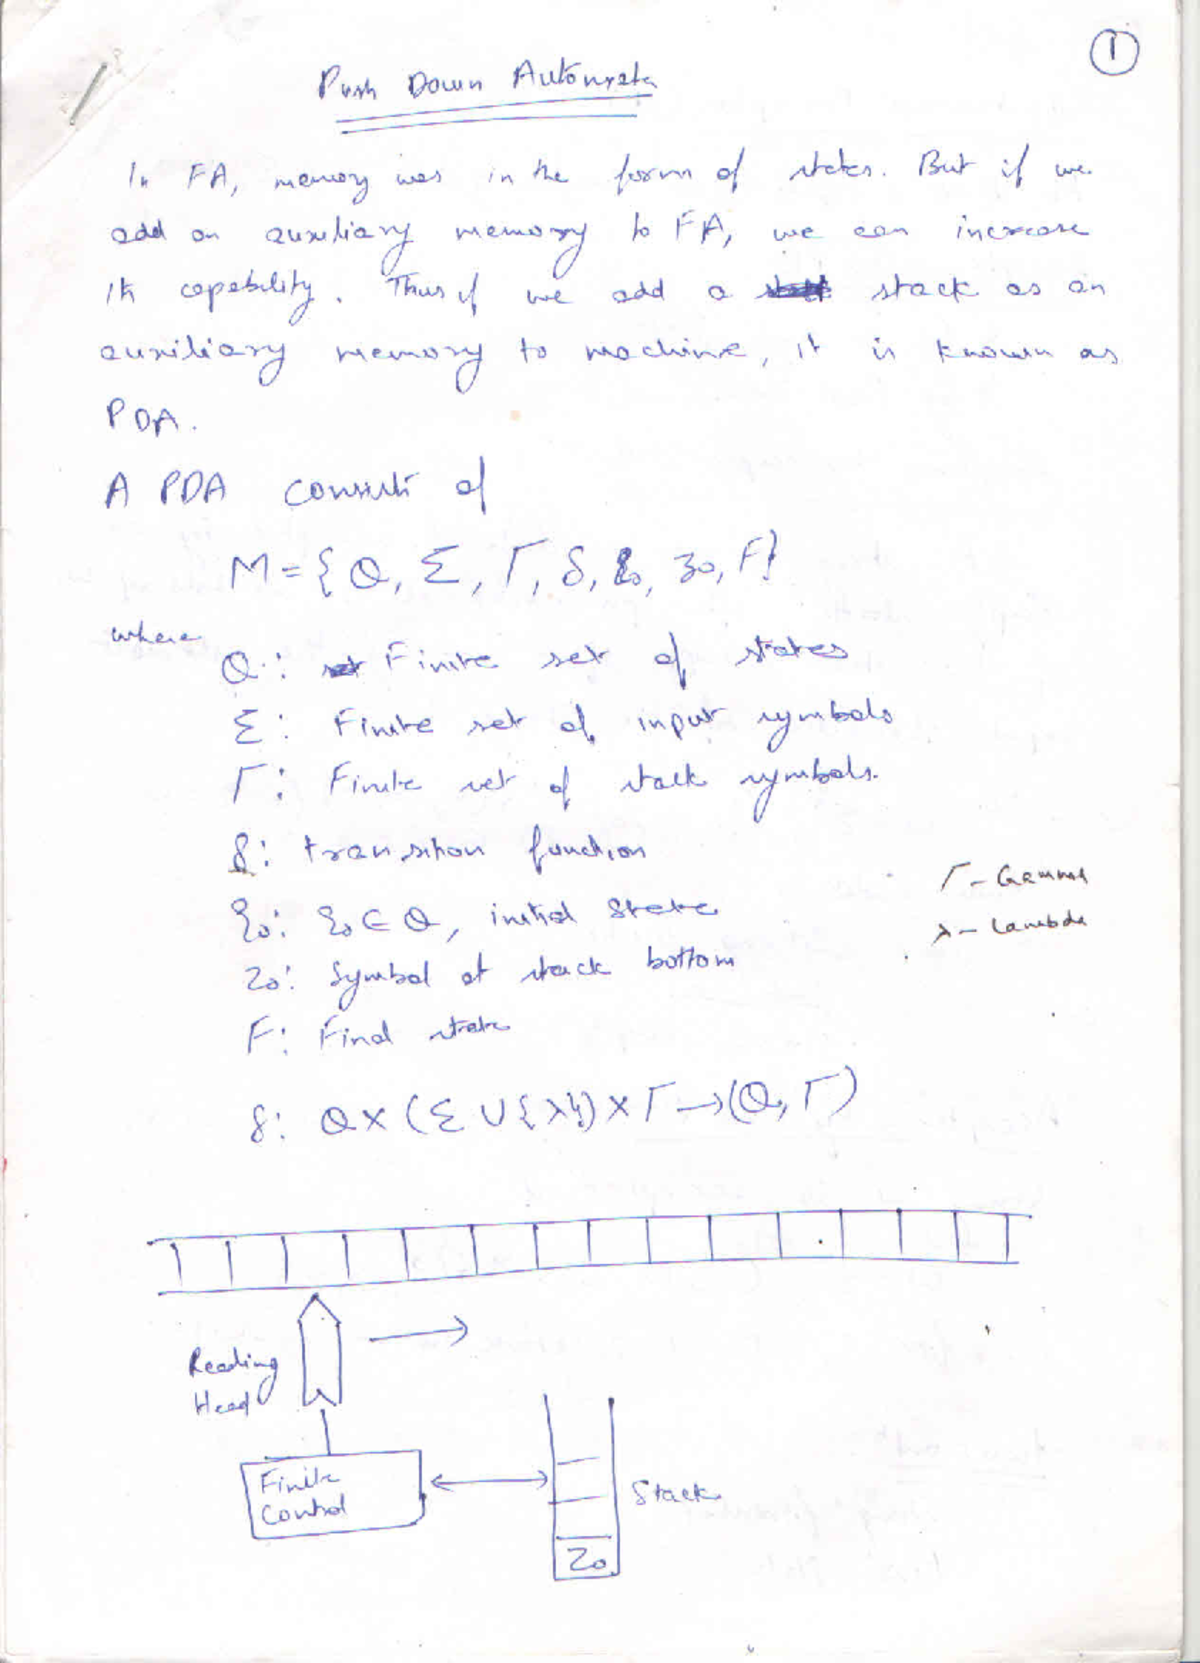 1
Push Down Automata
In FA, memory was in the form of states. But if we
add an auxiliary memory to FA, we can increase
its capability. Thus if we add a stack as an
auxiliary memory to machine, it is known as
PDA.
A PDA consists of
M = { Q, Σ, Γ, δ, q₀, z₀, F }
where
Q : Finite set of states
Σ : Finite set of input symbols
Γ : Finite set of stack symbols.
δ : transition function
Γ - Gamma
q₀ : q₀ ∈ Q, initial state
λ - Lambda
Z₀ : Symbol at stack bottom
F : Final state
δ : Q × (Σ ∪ {λ}) × Γ → (Q, Γ)
Reading
Head
Finite
Control
Stack
Z₀